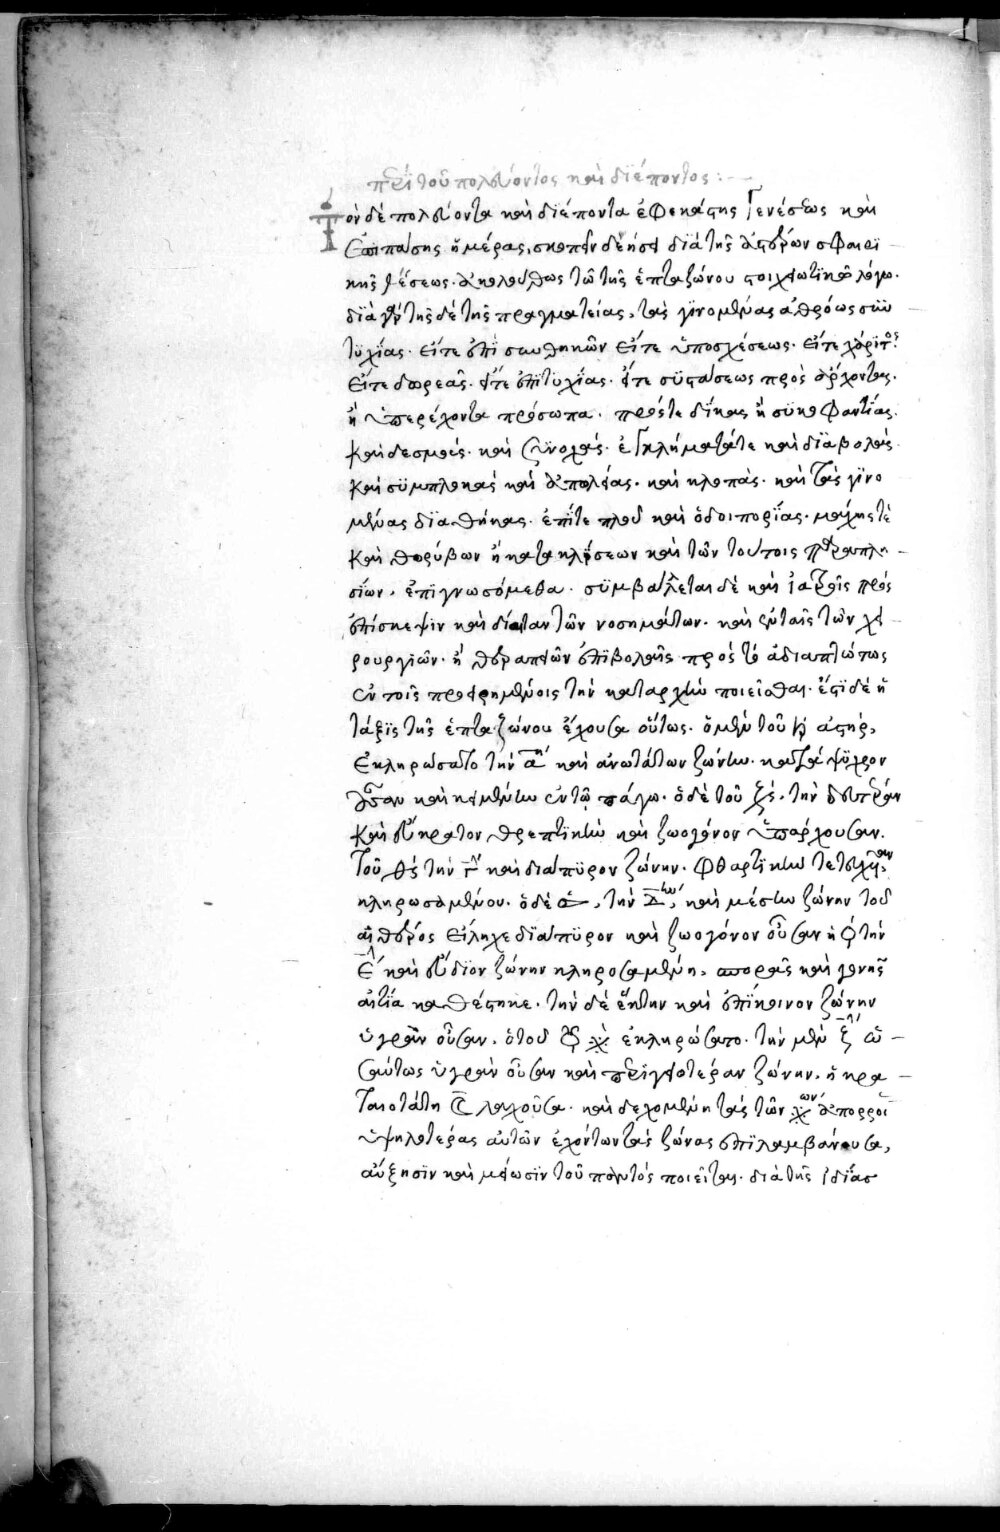 περὶ τοῦ πολεύοντος καὶ διέποντος :—
Τὸν δὲ πολεύοντα καὶ διέποντα ἐφ' ἑκάστης γενέσεως καὶ
ἐπὶ πάσης ἡμέρας, σκοπεῖν δεήσει διὰ τῆς ἀστέρων σφαιρι
κῆς θέσεως. ἀκολούθως τῶ τῆς ἑπταζώνου στοιχειωτικῶ λόγω.
διὰ γὰρ τῆσδε τῆς πραγματείας, τὰς γινομένας ἀθρόως συν
τυχίας. εἴτε ἐπὶ συνθηκῶν εἴτε ὑποσχέσεως. εἴτε χάριτος.
εἴτε δωρεᾶς. εἴτε ἐπιτυχίας. εἴτε συστάσεως πρὸς ἄρχοντας.
ἢ ὑπερέχοντα πρόσωπα. πρός τε δίκας ἢ συκοφαντίας.
καὶ δεσμοὺς. καὶ συνοχάς. ἐγκλήματά τε καὶ διαβολάς.
καὶ συμπλοκὰς καὶ ἀπολείας. καὶ κλοπὰς. καὶ τὰς γινο
μένας διαθήκας. ἐπί τε πλοῦ καὶ ὁδοιπορίας. μάχης τὲ
καὶ θορύβων ἢ κατακλήσεων καὶ τῶν τούτοις παραπλη
σίων, ἐπιγνωσόμεθα. συμβάλεται δὲ καὶ ἰατροῖς πρὸς
ἐπίσκεψιν καὶ δίαιταν τῶν νοσημάτων. καὶ ἐν ταῖς τῶν χει
ρουργιῶν. ἢ θεραπειῶν ἐπιβολαῖς πρὸς τὸ ἀδιαπτώτως
ἐν τοῖς προειρημένοις τὴν καταρχὴν ποιεῖσθαι. ἔστι δὲ ἡ
τάξις τῆς ἑπταζώνου ἔχουσα οὕτως. ὁ μὲν τοῦ ♄ ἀστήρ,
ἐκληρώσατο τὴν α ην καὶ ἀνωτάτων ζώνην. κατὰ ψύχρον
καὶ κειμένην ἐν τῶ πάγω. ὁ δὲ τοῦ ♃, τὴν δευτέραν
καὶ εὔκρατον θρεπτικὴν καὶ ζωογόνον ὑπάρχουσαν.
τοῦ ♂ τὴν γ ην καὶ διάπυρον ζώνην. φθαρτικὴν
κληρωσαμένου. ὁ δὲ ☉, τὴν δ ην, καὶ μέσην ζώνην τοῦ
αἰθέρος εἴληχε διάπυρον καὶ ζωογόνον οὖσαν ἡ ♀ τὴν
ε ην καὶ εὔδιον ζώνην κληροσαμένη. σπορᾶς καὶ γονῆς
αἰτία καθέστηκε. τὴν δὲ ἕκτην καὶ ἐπίκοινον ζώνην
ὑγρὰν οὖσαν, ὁ τοῦ ☿ ἐκληρώσατο. τὴν μὲν ζ ην ὡ
σαύτως ὑγρὰν οὖσαν καὶ περιγειοτέραν ζώνην, ἡ κρα
ταιοτάτη ☾ λαχοῦσα. καὶ δεχομένη τὰς τῶν ἀπορροί
ὑψηλοτέρας αὐτῶν ἐχόντων τὰς ζώνας ἐπιλαμβάνουσα,
αὔξησιν καὶ μείωσιν τοῦ παντὸς ποιεῖται. διὰ τῆς ἰδίας